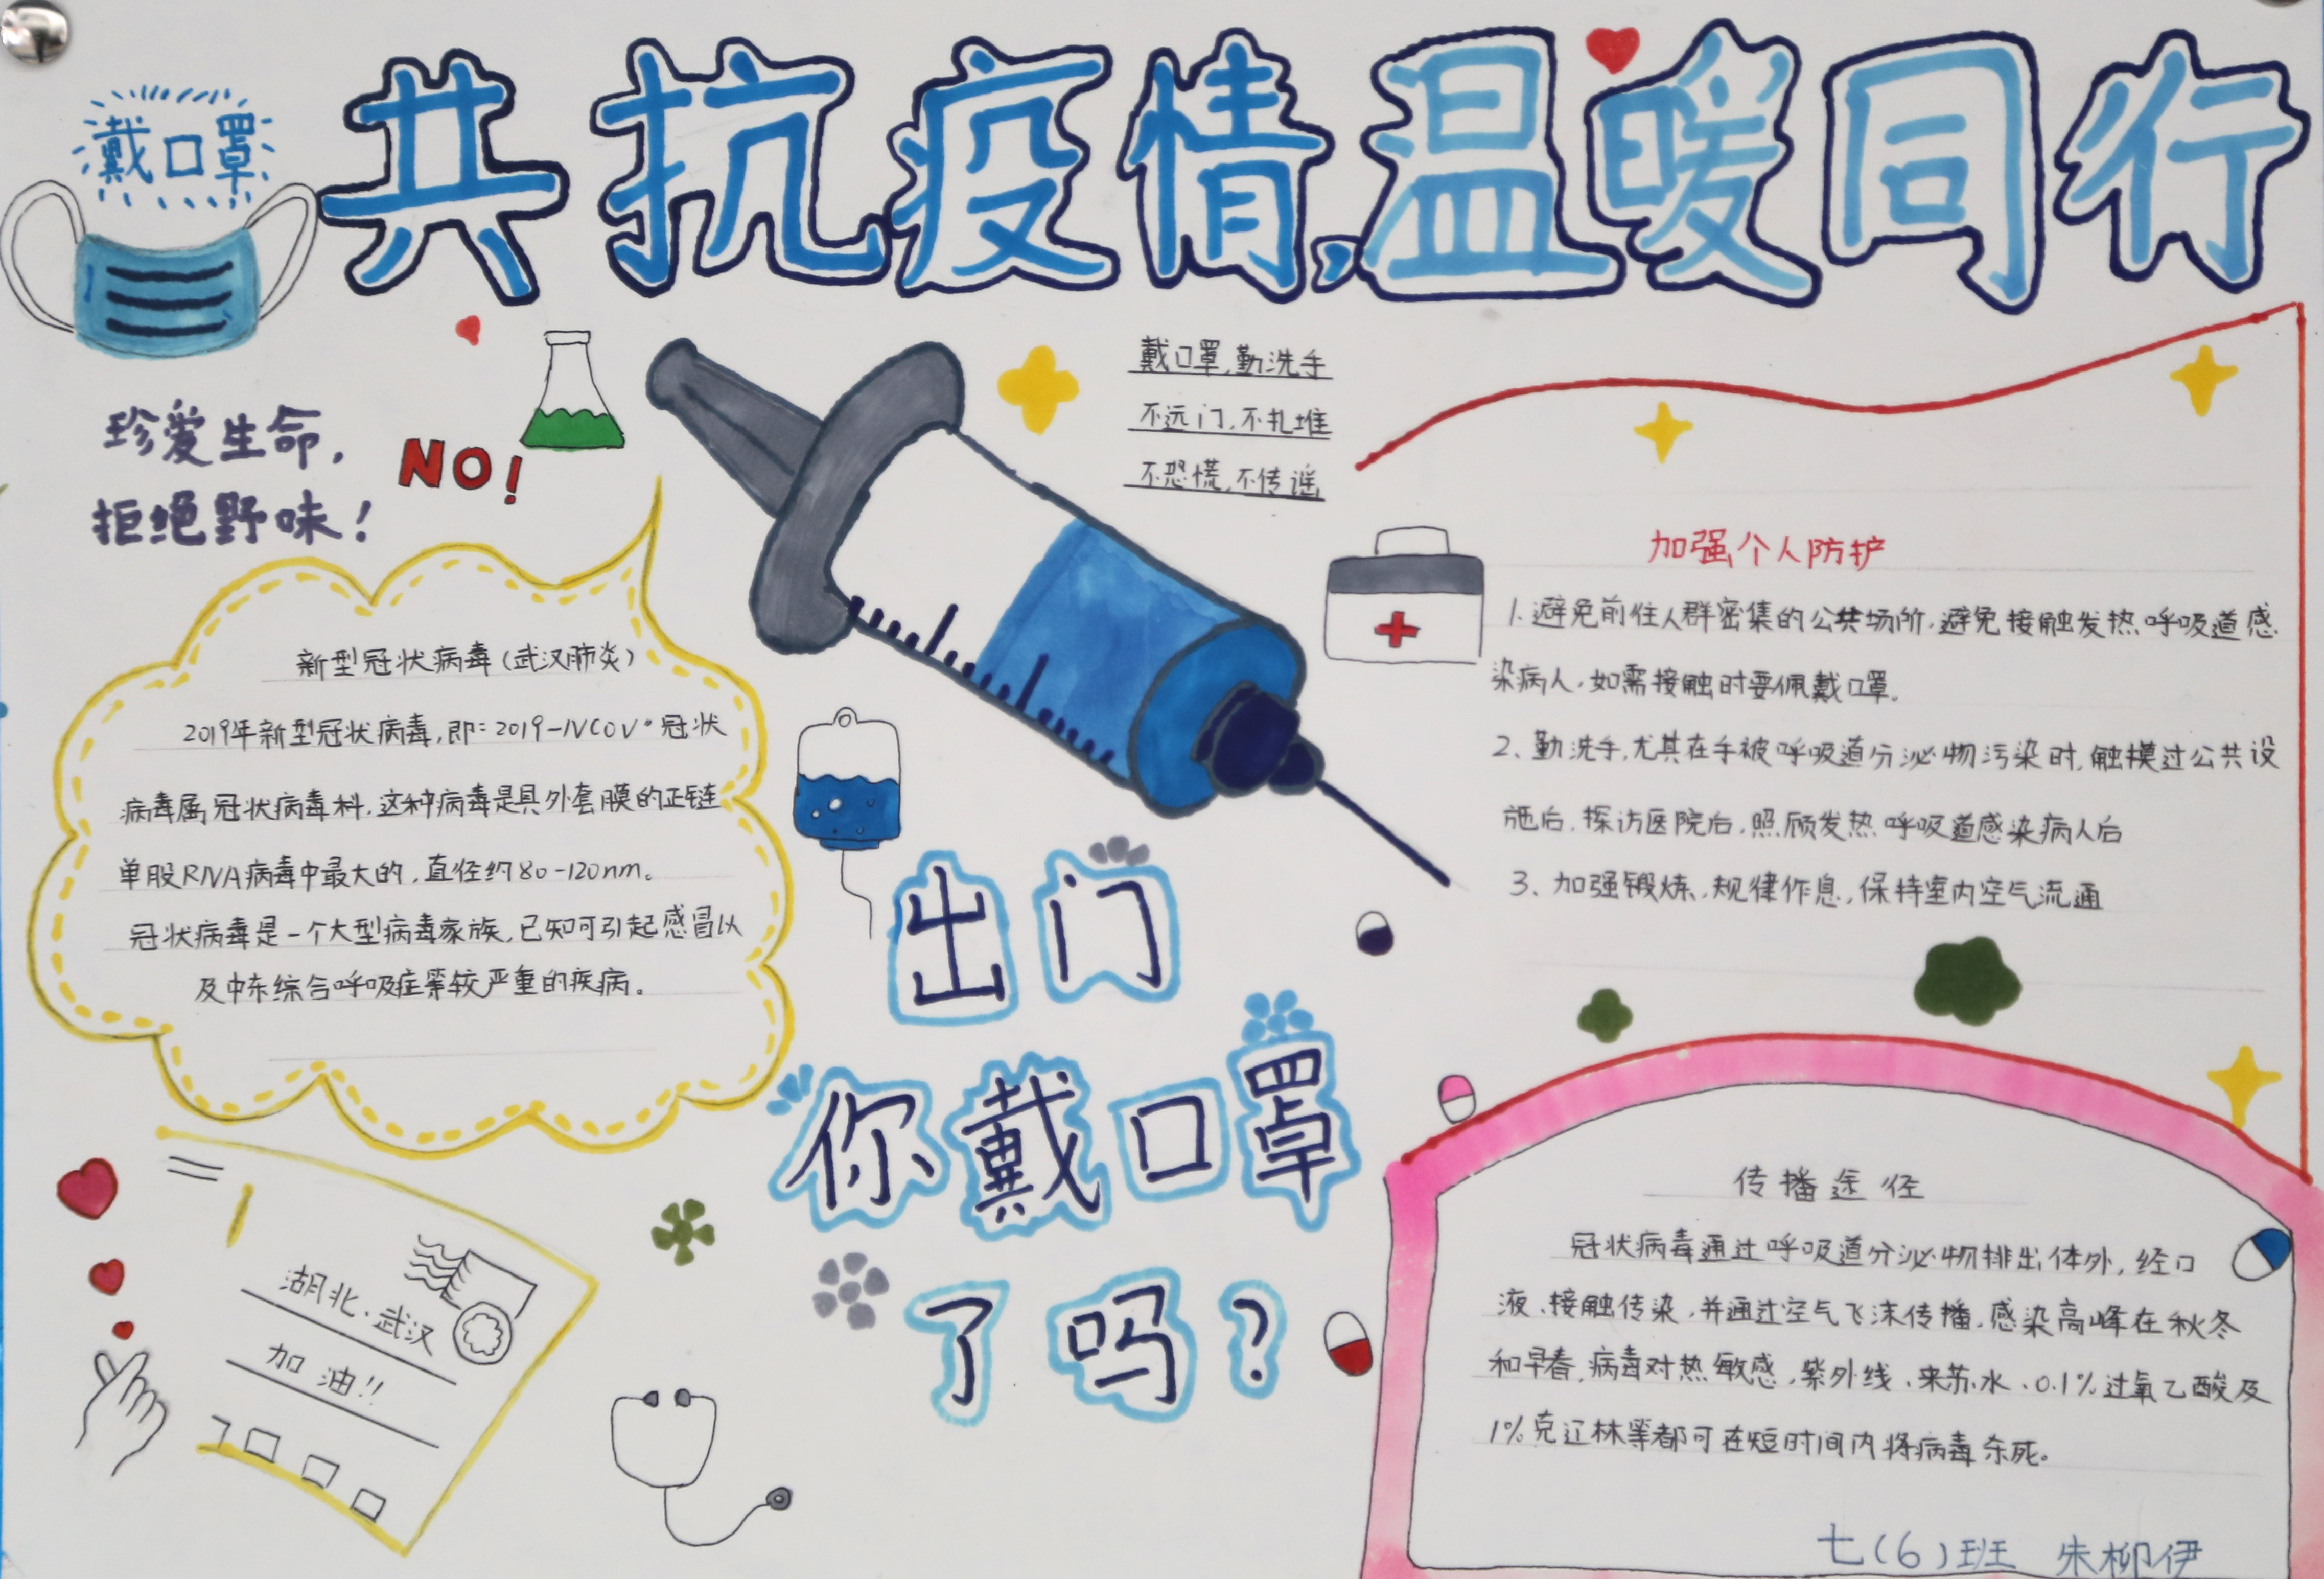 共抗疫情,温暖同行
戴口罩
珍爱生命,
拒绝野味!
NO!
戴口罩,勤洗手
不远门,不扎堆
不恐慌,不传谣
新型冠状病毒(武汉肺炎)
2019年新型冠状病毒,即:2019-NCOV"冠状
病毒属冠状病毒科.这种病毒是具外套膜的正链
单股RNA病毒中最大的,直径约80-120nm。
冠状病毒是一个大型病毒家族,已知可引起感冒以
及中东综合呼吸症等较严重的疾病。
加强个人防护
1.避免前往人群密集的公共场所.避免接触发热呼吸道感
染病人,如需接触时要佩戴口罩.
2、勤洗手,尤其在手被呼吸道分泌物污染时,触摸过公共设
施后,探访医院后,照顾发热呼吸道感染病人后
3、加强锻炼,规律作息,保持室内空气流通
出门
你戴口罩
了吗?
湖北·武汉
加油!!
传播途径
冠状病毒通过呼吸道分泌物排出体外,经口
液、接触传染,并通过空气飞沫传播,感染高峰在秋冬
和早春.病毒对热敏感,紫外线、来苏水、0.1%过氧乙酸及
1%克辽林等都可在短时间内将病毒杀死。
七(6)班 朱柳伊